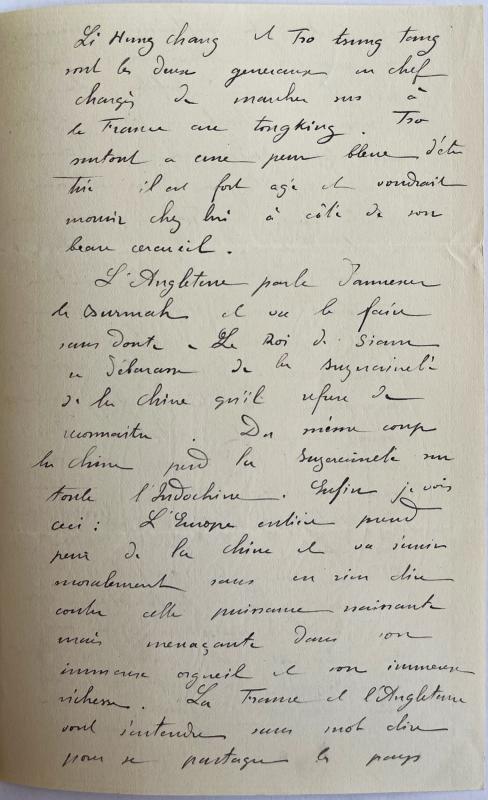 Li Hung chang et Tso tsung tang
sont les deux generaux en chef
chargés de marcher sus à
la France au Tongking. Tso
surtout a une peur bleue d'être
tué il est fort agé et voudrait
mourir chez lui à côté de son
beau cercueil.
L'Angleterre parle d'annexer
le Burmah et va le faire
sans doute – Le Roi de Siam
se débarasse de la suzeraineté
de la Chine qu'il refuse de
reconnaître. Du même coup
la Chine perd la suzeraineté sur
toute l'Indochine. Enfin je vois
ceci : L'Europe entière prend
peur de la Chine et va s'unir
moralement sans en rien dire
contre cette puissance naissante
mais menaçante dans son
immense orgueil et son immense
richesse. La France et l'Angleterre
vont s'entendre sans mot dire
pour se partager le pays